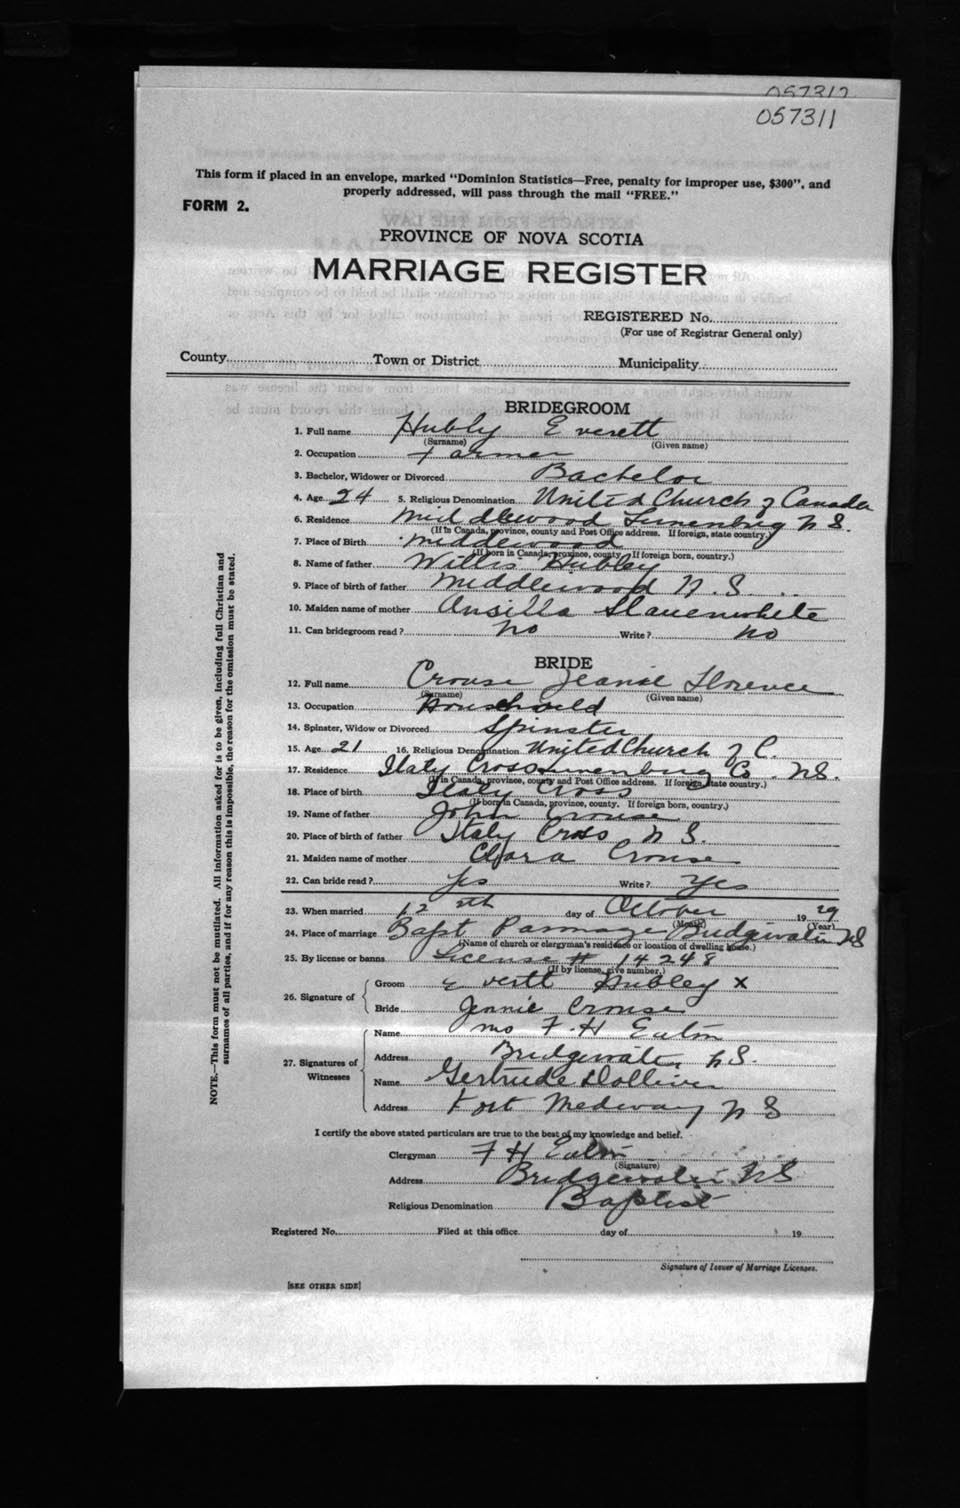 057312
057311
This form if placed in an envelope, marked "Dominion Statistics—Free, penalty for improper use, $300", and
properly addressed, will pass through the mail "FREE."
FORM 2.
PROVINCE OF NOVA SCOTIA
MARRIAGE REGISTER
REGISTERED No.
(For use of Registrar General only)
County Town or District Municipality
BRIDEGROOM
1. Full name Hubly Everett
(Surname) (Given name)
2. Occupation Farmer
3. Bachelor, Widower or Divorced Bachelor
4. Age 24 5. Religious Denomination United Church of Canada
6. Residence Middlewood Lunenburg N S.
(If in Canada, province, county and Post Office address. If foreign, state country.)
7. Place of Birth Middlewood
(If born in Canada, province, county. If foreign born, country.)
8. Name of father Willis Hubley
9. Place of birth of father Middlewood N. S.
10. Maiden name of mother Ansilla Slauenwhite
11. Can bridegroom read? No Write? No
BRIDE
12. Full name Crouse Jeanie Florence
(Surname) (Given name)
13. Occupation Household
14. Spinster, Widow or Divorced Spinster
15. Age 21 16. Religious Denomination United Church of C.
17. Residence Italy Cross Lunenburg Co. NS.
(If in Canada, province, county and Post Office address. If foreign, state country.)
18. Place of birth Italy Cross
(If born in Canada, province, county. If foreign born, country.)
19. Name of father John Crouse
20. Place of birth of father Italy Cross N S.
21. Maiden name of mother Clara Crouse
22. Can bride read? Yes Write? Yes
23. When married 12 th day of October 19 29
(Month) (Year)
24. Place of marriage Bapt Parsonage Bridgewater NS
(Name of church or clergyman's residence or location of dwelling house.)
25. By license or banns License # 14248
(If by license, give number.)
26. Signature of Groom Everett Hubley X
Bride Jennie Crouse
27. Signatures of Witnesses Name Mrs F. H Eaton
Address Bridgewater N S.
Name Gertrude Dolliver
Address Port Medway N S
I certify the above stated particulars are true to the best of my knowledge and belief.
Clergyman F H Eaton
(Signature)
Address Bridgewater NS
Religious Denomination Baptist
Registered No. Filed at this office day of 19
Signature of Issuer of Marriage Licenses.
[SEE OTHER SIDE]
NOTE.—This form must not be mutilated. All information asked for is to be given, including full Christian and
surnames of all parties, and if for any reason this is impossible, the reason for the omission must be stated.